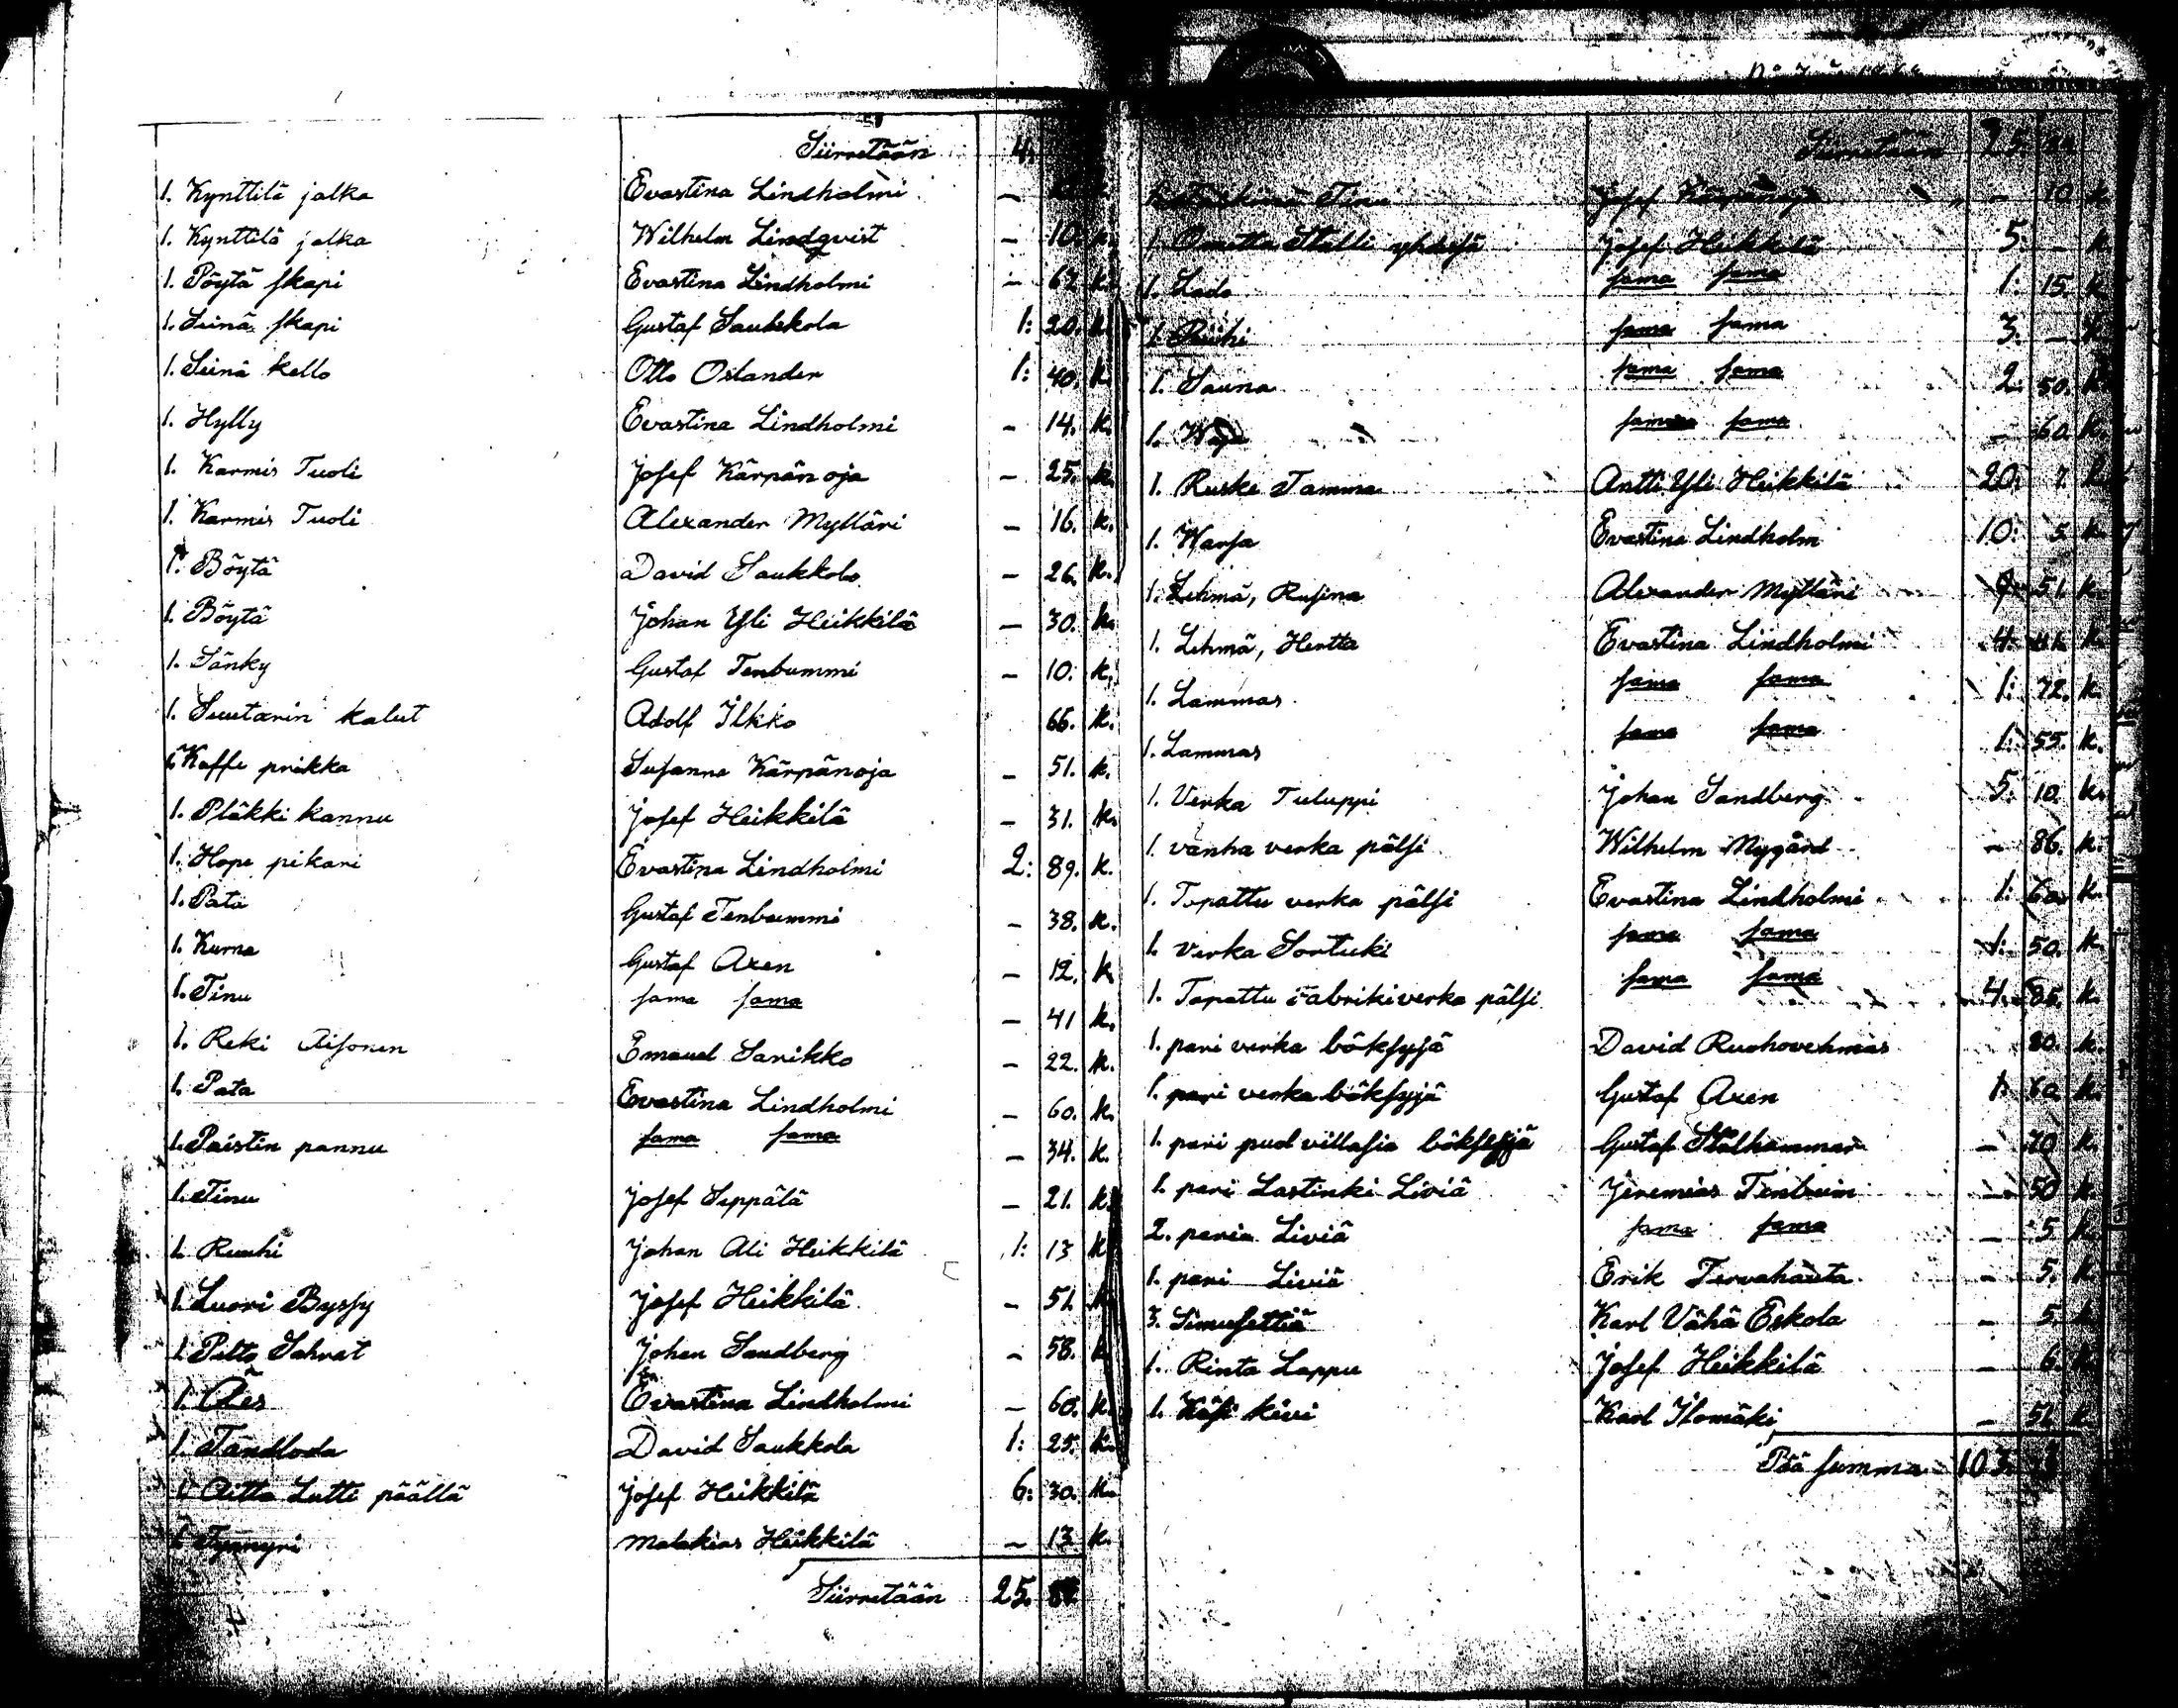 Siirretään 4.
1. Kynttilä jalka Evastina Lindholmi —
1. Kynttilä jalka Wilhelm Lindqvist — 10. k.
1. Pöytä skapi Evastina Lindholmi — 62 k.
1. Seinä skapi Gustaf Saukkola 1: 20. k.
1. Seinä kello Otto Oslander 1: 40. k.
1. Hylly Evastina Lindholmi — 14. k.
1. Karmis Tuoli Josef Kärpänoja — 25. k.
1. Karmis Tuoli Alexander Mylläri — 16. k.
1. Böytä David Saukkola — 26. k.
1. Böytä Johan Yli Heikkilä — 30. k.
1. Sänky Gustaf Tenbummi — 10. k.
1. Suutarin kalut Adolf Ilkko 66. k.
1. Kaffe prikka Susanna Kärpänoja — 51. k.
1. Pläkki kannu Josef Heikkilä — 31. k.
1. Hope pikari Evastina Lindholmi 2: 89. k.
1. Pata Gustaf Tenbummi — 38. k.
1. Kurna Gustaf Axen — 12. k
1. Tinu sama sama — 41 k.
1. Reki Aisonen Emanuel Sarikko — 22. k.
1. Pata Evastina Lindholmi — 60. k.
1. Paistin pannu sama sama — 34. k.
1. Tinu Josef Seppälä — 21. k.
1. Ruuhi Johan Ali Heikkilä 1: 13 k
1. Luori Byssy Josef Heikkilä — 51. k
1. Pelto Sahrat Johan Sandberg — 58. k
1. Äes Evastina Lindholmi — 60. k.
1. Tandloda David Saukkola 1: 25. k.
1. Aitta Lutti päällä Josef Heikkilä 6: 30. k.
1. Tynnyri Malakias Heikkilä — 13 k.
Siirretään 25.
Siirretään 25.
Tinu Josef Kärpänoja — 10 k
1. Ometta Stalli yhdesä Josef Heikkilä 5. — k
1. Lado sama sama 1: 15. k
1. Riihi sama sama 3. —
1. Sauna sama sama 2. 50. k
1. sama sama — 60. k.
1. Ruske Tamma Antti Yli Heikkilä 20. 7. k
1. Warsa Evastina Lindholm 10: 5. k
1. Lehmä, Rusina Alexander Mylläri 51. k.
1. Lehmä, Hertta Evastina Lindholmi 4: 41. k.
1. Lammas sama sama 1: 72. k.
1. Lammas sama sama 1: 55. k.
1. Verka Tuluppi Johan Sandberg 5. 10. k.
1. vanha verka pälsi Wilhelm Nygård — 86. k.
1. Topattu verka pälsi Evastina Lindholmi 1: 60. k.
1. Verka Sortuki sama sama 1: 50. k.
1. Topattu Fabrikiverka pälsi sama sama 4. 85. k.
1. pari verka böksyjä David Ruohovehmas 80. k.
1. pari verka böksyjä Gustaf Axen 1. 60 k.
1. pari puol villasia böksyjä Gustaf Stålhammar — 70 k.
1. pari Lastinki Liviä Jeremias Tenbum — 50 k.
2. paria Liviä sama sama — 5 k.
1. pari Liviä Erik Tervahauta — 5. k
3. Simusettiä Karl Vähä Eskola — 5.
1. Rinta Lappu Josef Heikkilä — 6. k
1. Käsi kivi Karl Ilomäki — 51. k.
Pää summa 103.